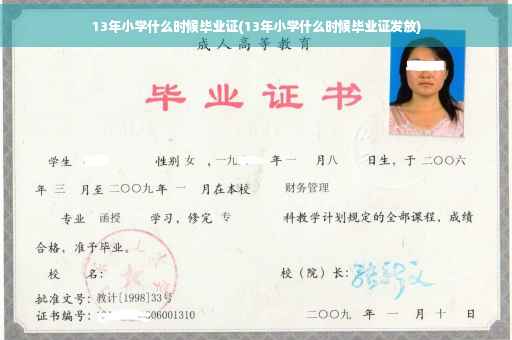 13年小学什么时候毕业证(13年小学什么时候毕业证发放)
成人高等教育
毕业证书
学生 性别 女 ，一九 年 一 月八 日生，于 二〇〇六
年 三 月至 二〇〇九 年 一 月在本校 财务管理
专业 函授 学习，修完 专 科教学计划规定的全部课程，成绩
合格，准予毕业。
校 名： 校（院）长：
批准文号：教计[1998]33号
证书编号： 006001310 二〇〇九 年 一 月 十 日